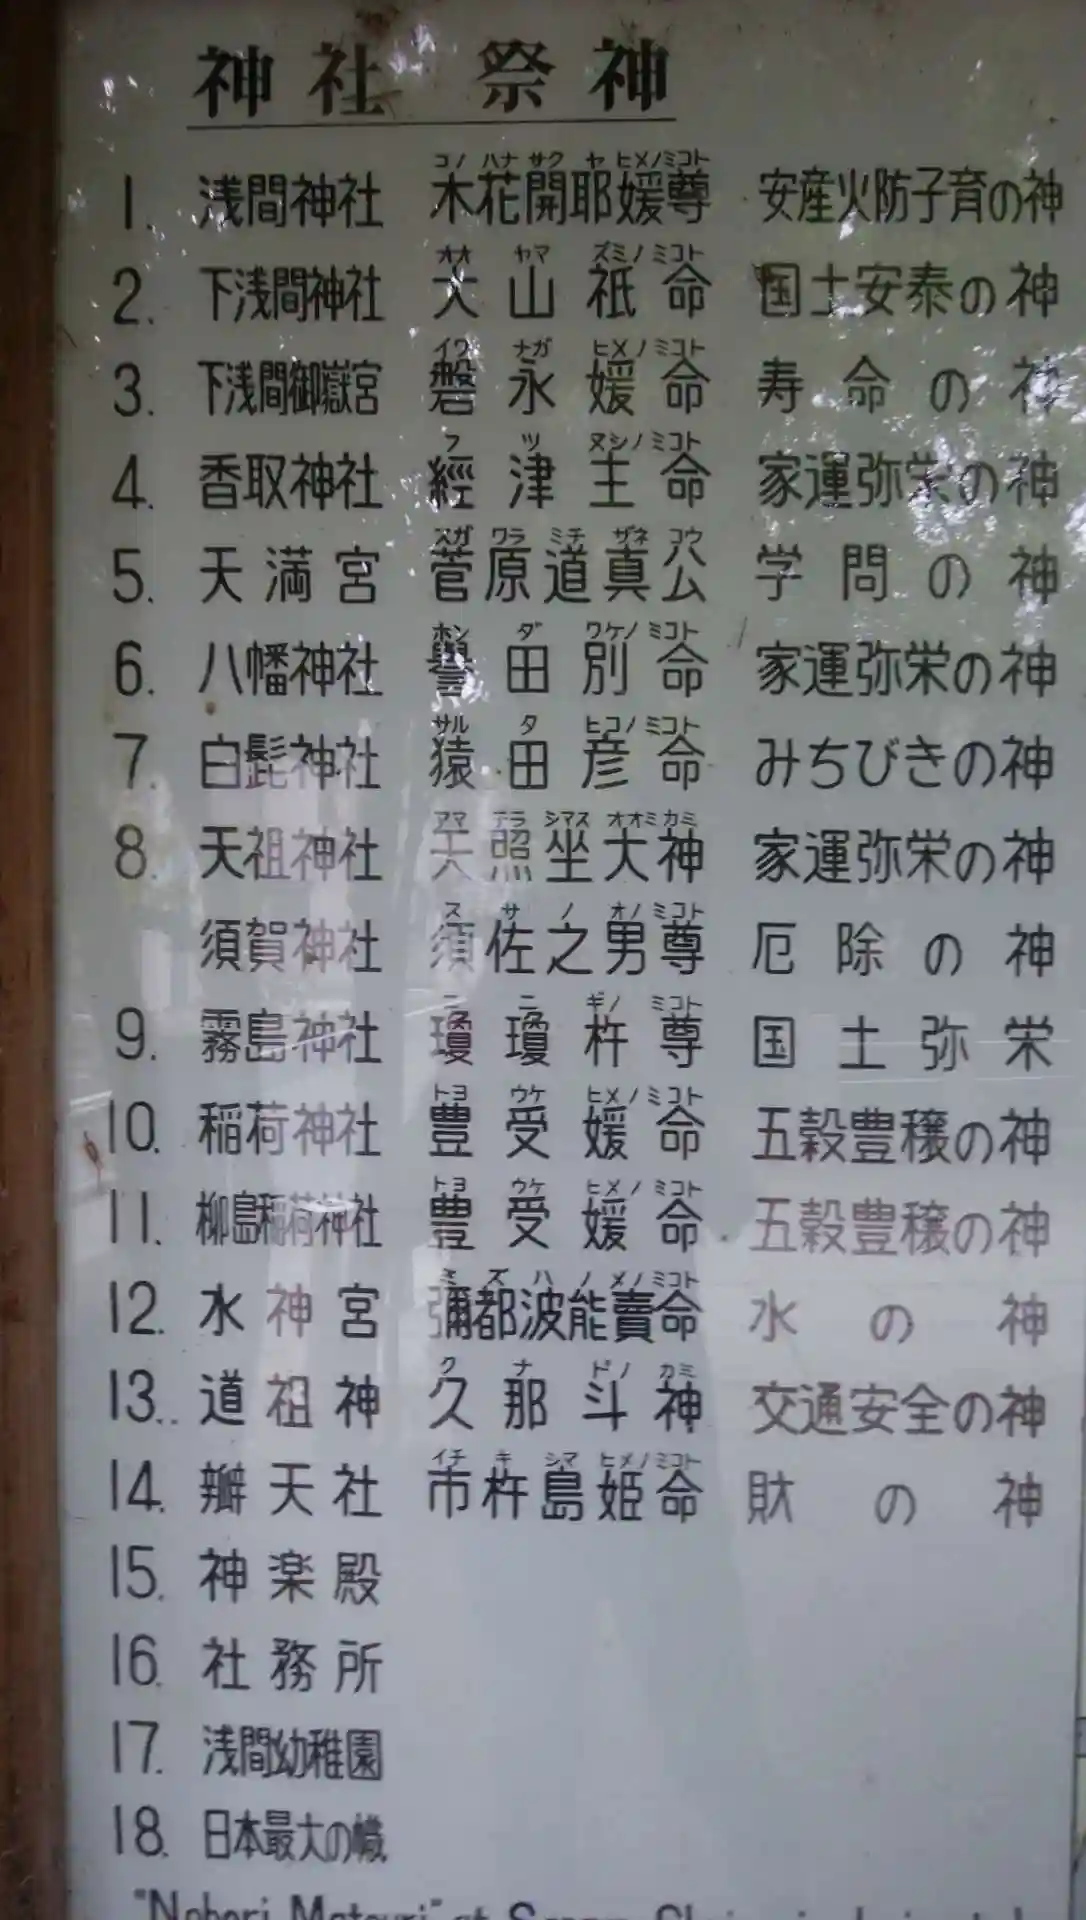 神社 祭神
コノ ハナ サク ヤ ヒメノミコト
1. 浅間神社 木花開耶媛尊 安産火防子育の神
オオ ヤマ ズミノミコト
2. 下浅間神社 大山祇命 国土安泰の神
イワ ナガ ヒメノミコト
3. 下浅間御嶽宮 磐永媛命 寿命の神
フ ツ ヌシノミコト
4. 香取神社 經津主命 家運弥栄の神
スガ ワラ ミチ ザネ コウ
5. 天満宮 菅原道真公 学問の神
ホン ダ ワケノミコト
6. 八幡神社 譽田別命 家運弥栄の神
サル タ ヒコノミコト
7. 白髭神社 猿田彦命 みちびきの神
アマ テラ シマス オオミカミ
8. 天祖神社 天照坐大神 家運弥栄の神
ス サ ノ オノミコト
須賀神社 須佐之男尊 厄除の神
ニ ニ ギノ ミコト
9. 霧島神社 瓊瓊杵尊 国土弥栄
トヨ ウケ ヒメノミコト
10. 稲荷神社 豊受媛命 五穀豊穣の神
トヨ ウケ ヒメノミコト
11. 柳島稲荷神社 豊受媛命 五穀豊穣の神
ミ ズ ハ ノ メノミコト
12. 水神宮 彌都波能賣命 水の神
ク ナ ドノ カミ
13. 道祖神 久那斗神 交通安全の神
イチ キ シマ ヒメノミコト
14. 瓣天社 市杵島姫命 財の神
15. 神楽殿
16. 社務所
17. 浅間幼稚園
18. 日本最大の幟
"Nobori Matsuri" at